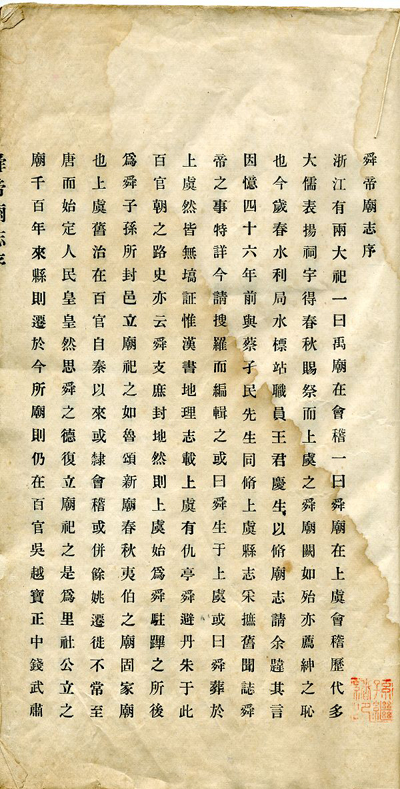 舜帝廟志序
浙江有兩大祀一曰禹廟在會稽一曰舜廟在上虞會稽歷代多
大儒表揚祠宇得春秋賜祭而上虞之舜廟闕如殆亦薦紳之恥
也今歲春水利局水標站職員王君慶生以脩廟志請余韙其言
因憶四十六年前與蔡孑民先生同脩上虞縣志采摭舊聞誌舜
帝之事特詳今請搜羅而編輯之或曰舜生于上虞或曰舜葬於
上虞然皆無塙証惟漢書地理志載上虞有仇亭舜避丹朱于此
百官朝之路史亦云舜支庶封地然則上虞始爲舜駐蹕之所後
爲舜子孫所封邑立廟祀之如魯頌新廟春秋夷伯之廟固家廟
也上虞舊治在百官自秦以來或隸會稽或併餘姚遷徙不常至
唐而始定人民皇皇然思舜之德復立廟祀之是爲里社公立之
廟千百年來縣則遷於今所廟則仍在百官吳越寶正中錢武肅
舜帝廟志序